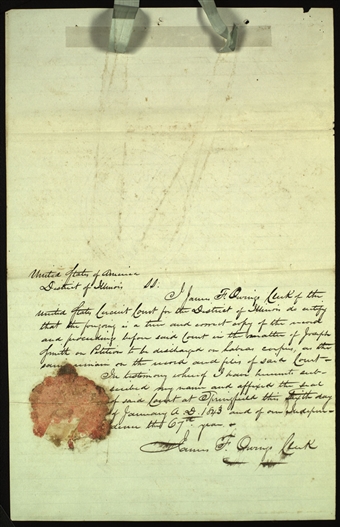 United States of America
District of Illinois SS.
I James F. Owings Clerk of the
United States Circuit Court for the District of Illinois do certify
that the foregoing is a true and correct copy of the record
and proceedings before said Court in the matter of Joseph
Smith on Petition to be discharged on habeas corpus, as the
same remain on the record and files of said Court—
In testimony whereof I have hereunto sub-
scribed my name and affixed the seal
of said Court at Springfield this day
of January A. D. 1843 and of our Indepen-
dence the 67th year.
James F. Owings Clerk